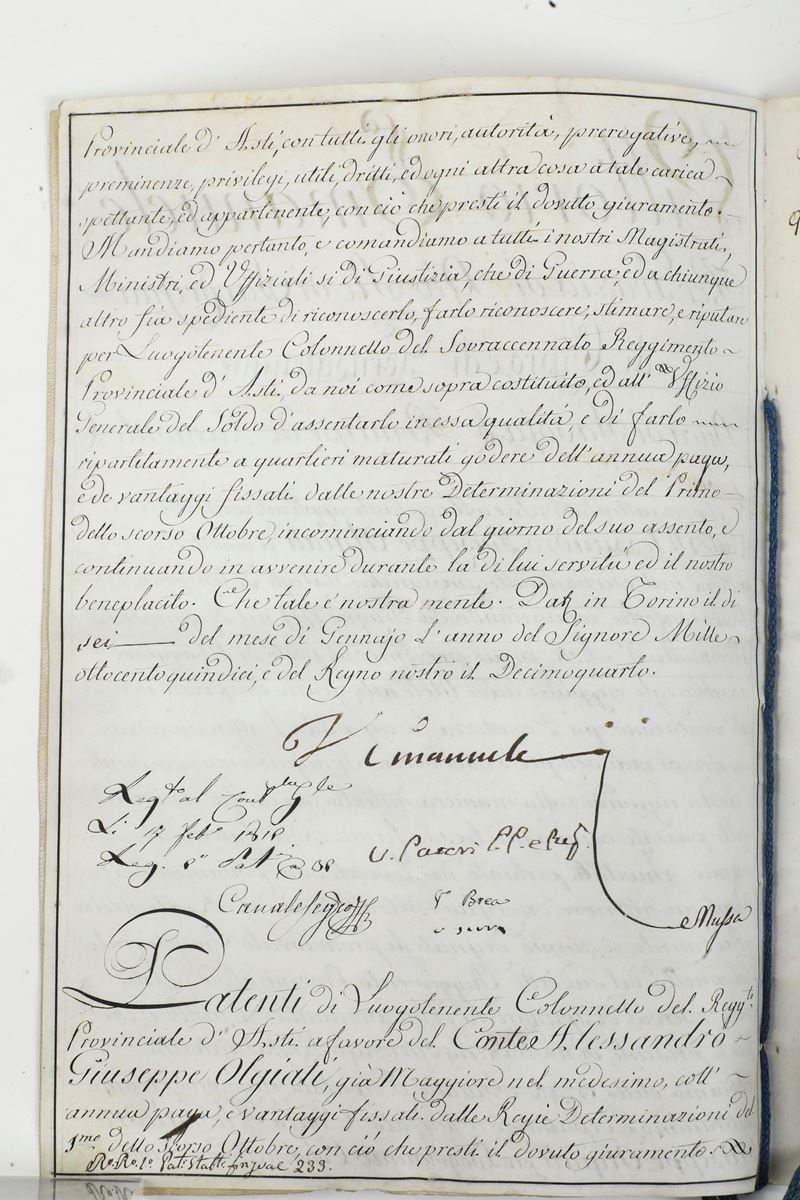 Provinciale d' Asti, con tutti gli onori, autorità, prerogative,
preminenze, privilegi, utili, dritti, ed ogni altra cosa a tale carica
spettante, ed appartenente, con ciò che presti il dovuto giuramento.
Mandiamo pertanto, e comandiamo a tutti i nostri Magistrati,
Ministri, ed Uffiziali sì di Giustizia, che di Guerra, ed a chiunque
altro fia spediente di riconoscerlo, farlo riconoscere, stimare, e riputare
per Luogotenente Colonnello del Sovraccennato Reggimento
Provinciale d' Asti, da noi come sopra costituito, ed all' Uffizio
Generale del Soldo d'assentarlo in essa qualità, e di farlo
ripartitamente a quartieri maturati godere dell' annua paga,
e de vantaggi fissati dalle nostre Determinazioni del Primo
dello scorso Ottobre, incominciando dal giorno del suo assento, e
continuando in avvenire durante la di lui servitù ed il nostro
beneplacito. Che tale è nostra mente. Dat. in Torino il dì
sei del mese di Gennajo l' anno del Signore Mille
ottocento quindici, e del Regno nostro il Decimoquarto.
V Emanuele
Li 17 feb.
Reg.
Canale
V. Brea
Mussa
Patenti di Luogotenente Colonnello del Regg.to
Provinciale d' Asti a favore del Conte Alessandro
Giuseppe Olgiati, già Maggiore nel medesimo, coll'
annua paga, e vantaggi fissati dalle Regie Determinazioni del
1.mo dello scorso Ottobre, con ciò che presti il dovuto giuramento.
233.